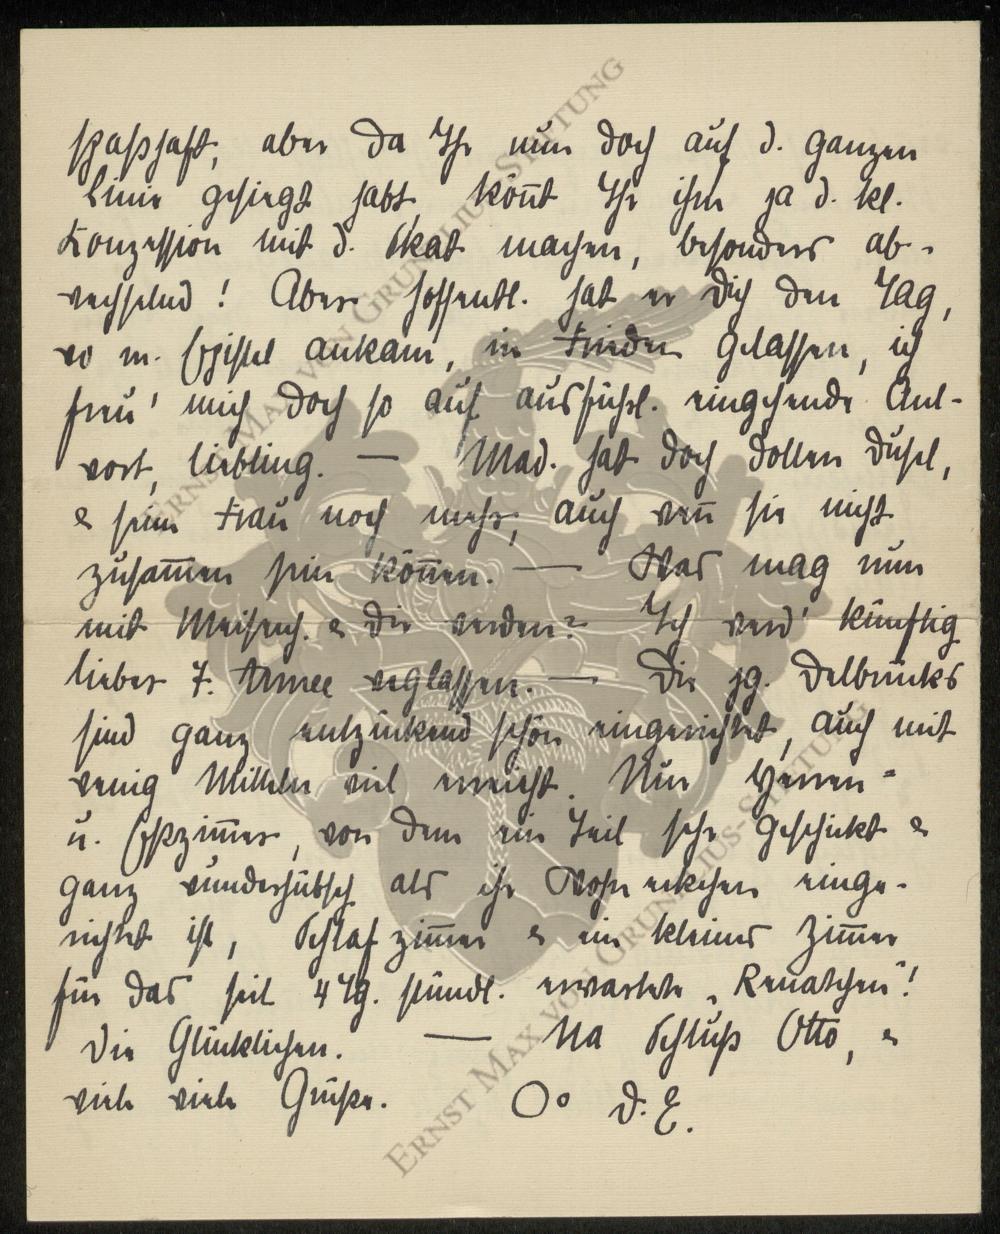 spaßhaft, aber da Ihr nun doch auf d. ganzen
Linie gesiegt habt, kön̄t Ihr ihm ja d. kl.
Konzession mit d. Skat machen, besonders ab-
wechselnd! Aber hoffentl. hat er Dich den Tag,
wo m. Epistel ankam, in Frieden gelassen, ich
freu' mich doch so auf ausführl. eingehende Ant-
wort, Liebling. — Mad. hat doch dollen Dusel,
& seine Frau noch mehr, auch wen̄ sie nicht
zusam̄en sein kön̄en. — Was mag nun
mit Meisench. & Die werden? Ich werd' künftig
lieber 7. Armee weglassen. — Die jg. Delbrücks
sind ganz entzückend schön eingerichtet, auch mit
wenig Mitteln viel erreicht. Nur Herren-
u. Eßzim̄er, von dem ein Teil sehr geschickt &
ganz wunderhübsch als ihr Wohneckchen einge-
richtet ist, Schlafzim̄er & ein kleines Zim̄er
für das seit 4 Tg. stündl. erwartete „Renatchen"!
Die Glücklichen. — Na Schluß Otto, &
viele viele Grüße. Oo D. E.
ERNST MAX VON GRUNELIUS-STIFTUNG
ERNST MAX VON GRUNELIUS-STIFTUNG